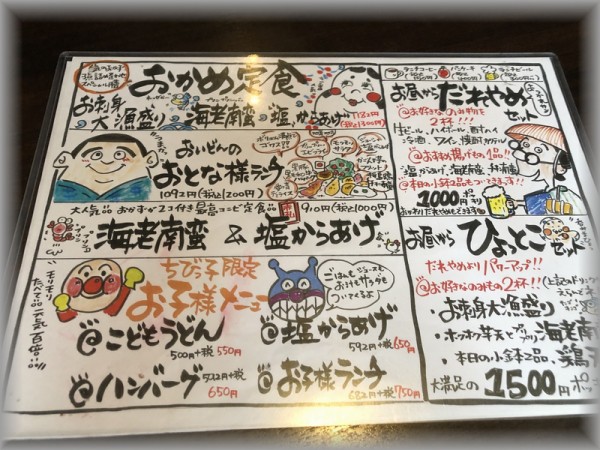 おかめ定食
お刺身
大漁盛り
海老南蛮
塩からあげ
おいどんの
おとな様ランチ
1092円(税込1200円)
大人気品 おかずが2コ付き最高コンビ定食品
910円(税込1000円)
海老南蛮 & 塩からあげ
ちびっ子限定
お子様メニュー
@こどもうどん
500円+税 550円
@塩からあげ
592円+税 650円
@ハンバーグ
650円
@お子様ランチ
682円+税 750円
ごはんもジュースも
おけもサラダも
ついてるよ
モリモリ
たべて品
元気百倍
ランチコーヒー
パンケーキ
ランチビール
お昼から だれやめ
セット
@お好きなのみ物を
2杯!!!
生ビール、ハイボール、酎ハイ
冷酒、ワイン、焼酎、カクテル
@おすすめ揚げもの1品!!
塩からあげ、海老南蛮、チキン南蛮
@本日の小鉢2品もついてきます!!
1000円
お昼から ひょっとこ
セット
だれやめより パワーアップ!!
@お好きなのみもの2杯!!
・お刺身大漁盛り
海老南
・本日の小鉢2品、
大満足の 1500円